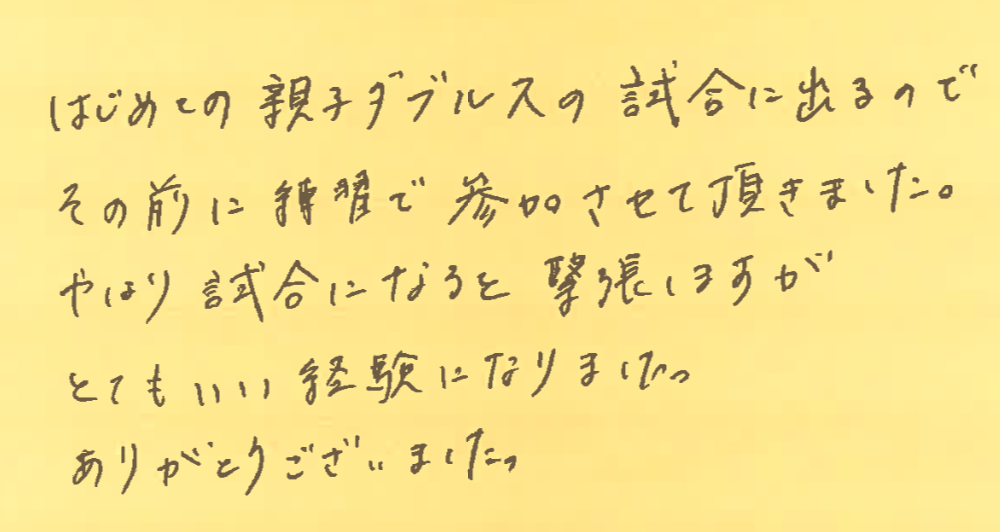 はじめての親子ダブルスの試合に出るので
その前に練習で参加させて頂きました。
やはり試合になると緊張しますが
とてもいい経験になりました。
ありがとうございました。